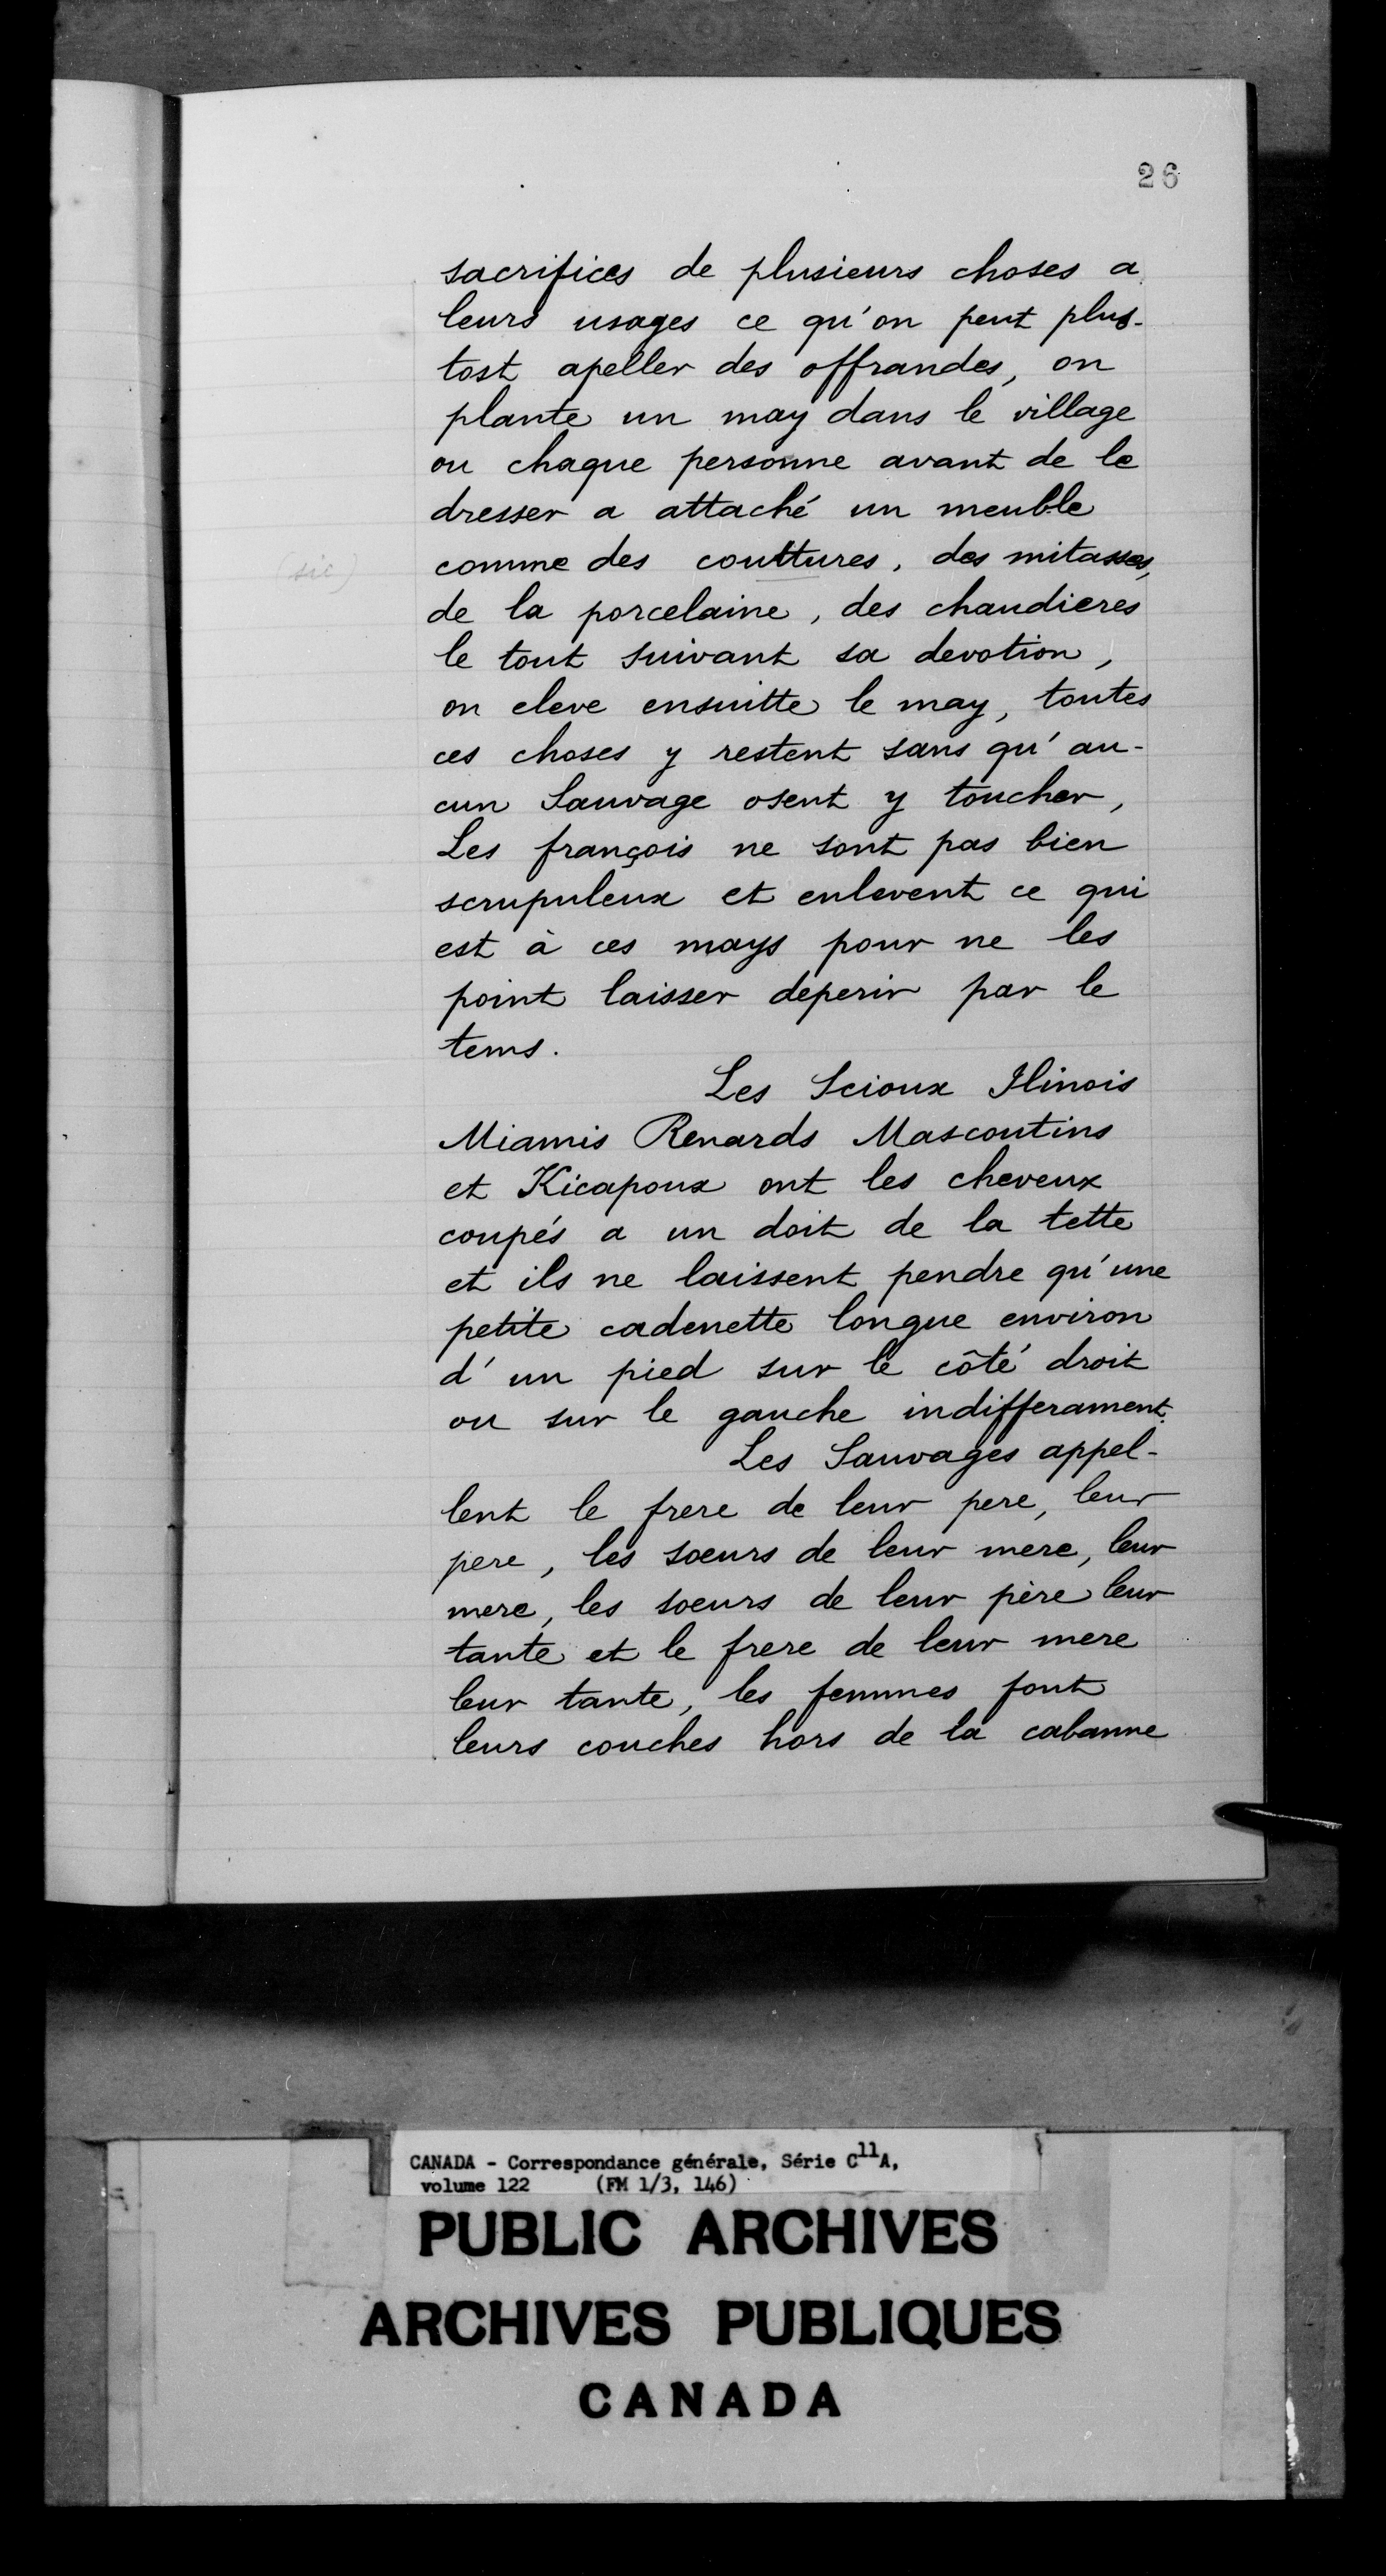 26
sacrifices de plusieurs choses a
leurs usages ce qu'on peut plus-
tost apeller des offrandes, on
plante un may dans le village
ou chaque personne avant de le
dresser a attaché un meuble
(sic) comme des couttures, des mitasses,
de la porcelaine, des chaudieres
le tout suivant sa devotion,
on eleve ensuitte le may, toutes
ces choses y restent sans qu'au-
cun Sauvage osent y toucher,
Les françois ne sont pas bien
scrupuleux et enlevent ce qui
est à ces mays pour ne les
point laisser deperir par le
tems.
Les Scioux Ilinois
Miamis Renards Mascoutins
et Kicapoux ont les cheveux
coupés a un doit de la tette
et ils ne laissent pendre qu'une
petite cadenette longue environ
d'un pied sur le côté droit
ou sur le gauche indifferament.
Les Sauvages appel-
lent le frere de leur pere, leur
pere, les soeurs de leur mere, leur
mere, les soeurs de leur père leur
tante et le frere de leur mere
leur tante, les femmes font
leurs couches hors de la cabanne
CANADA - Correspondance générale, Série C11A,
volume 122 (FM 1/3, 146)
PUBLIC ARCHIVES
ARCHIVES PUBLIQUES
CANADA